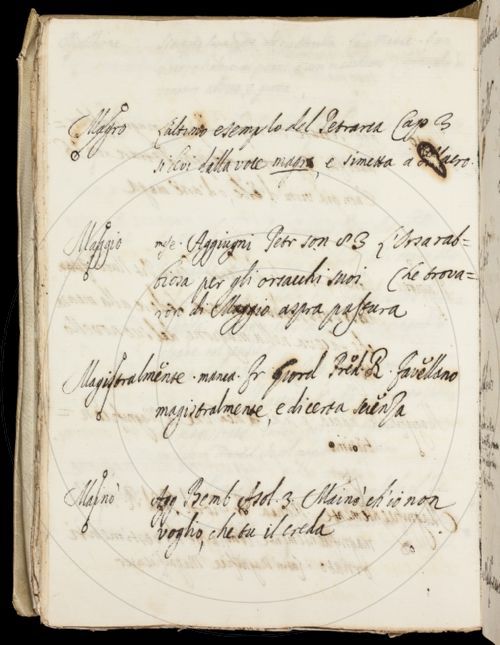 Magro L'ultimo esemplo del Petrarca Cap. 3
si levi dalla voce magro, e si metta a
Maggio mse. Aggiugni Petr son 83 L'Orsa rab=
biosa per gli orsacchi suoi. Che trova=
ron di Maggio aspra pastura
Magistralmẽnte manca. Fr Giord Prẽd. R. Favellano
magistralmente, e di certa sciẽnza
Mainò Agg Bemb Asol. 3 Mainò ch'io non
voglio, che tu il creda